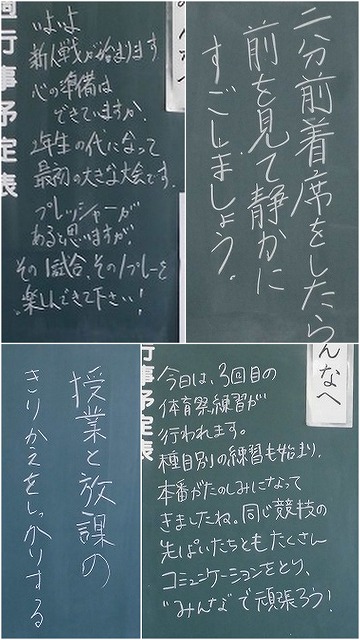 いよいよ
新人戦が始まります
心の準備は
できていますか?
2年生の代になって
最初の大きな大会です。
プレッシャーが
あると思いますが、
その1試合、その1プレーを
楽しんできて下さい!
行事予定表
二分前着席をしたら
前を見て静かに
すごしましょう。
授業と放課の
きりかえをしっかりする
行事予定表
んなへ
今日は、3回目の
体育祭練習が
行われます。
種目別の練習も始まり、
本番がたのしみになって
きましたね。同じ競技の
先ぱいたちともたくさん
コミュニケーションをとり、
"みんな"で頑張ろう!